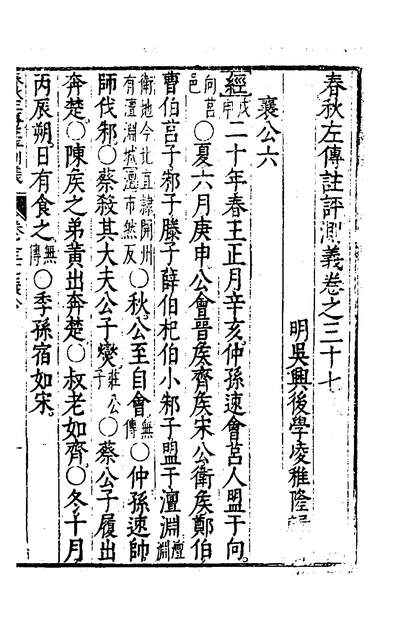 春秋左傳註評測義卷之三十七
明吳興後學凌稚隆輯
襄公六
經戊申二十年春王正月辛亥仲孫速會莒人盟于向。
向莒邑○夏六月庚申公會晉矦齊矦宋公衛矦鄭伯
曹伯莒子邾子滕子薛伯杞伯小邾子盟于澶淵澶淵
衛地今北直隷開州有澶淵城澶市然反○秋公至自會無傳○仲孫速帥
師伐邾○蔡殺其大夫公子燮莊公子○蔡公子履出
奔楚○陳矦之弟黃出奔楚○叔老如齊○冬十月
丙辰朔日有食之無傳○季孫宿如宋。